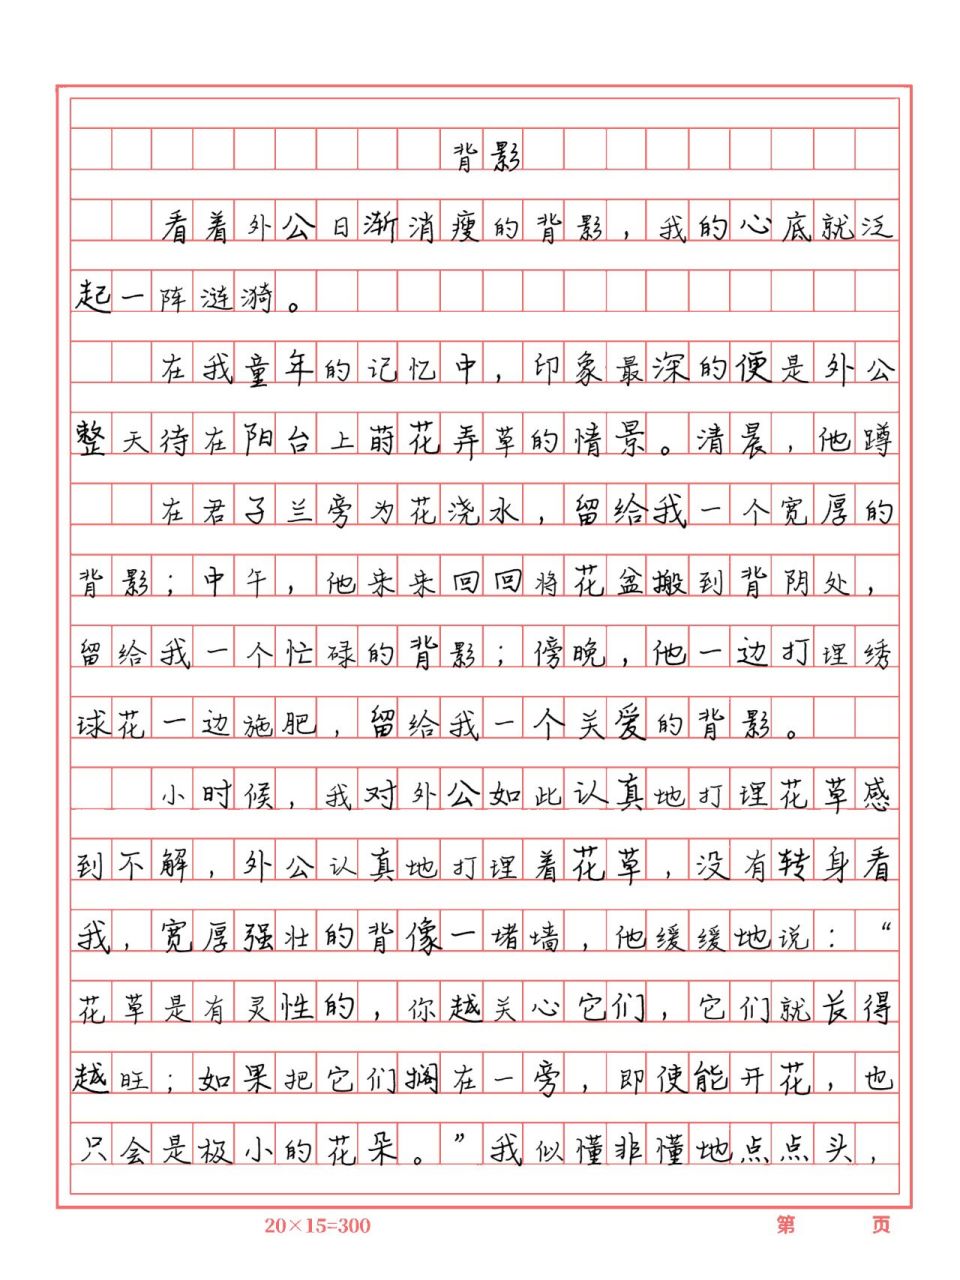 背影
看着外公日渐消瘦的背影，我的心底就泛
起一阵涟漪。
在我童年的记忆中，印象最深的便是外公
整天待在阳台上莳花弄草的情景。清晨，他蹲
在君子兰旁为花浇水，留给我一个宽厚的
背影；中午，他来来回回将花盆搬到背阴处，
留给我一个忙碌的背影；傍晚，他一边打理绣
球花一边施肥，留给我一个关爱的背影。
小时候，我对外公如此认真地打理花草感
到不解，外公认真地打理着花草，没有转身看
我，宽厚强壮的背像一堵墙，他缓缓地说：“
花草是有灵性的，你越关心它们，它们就长得
越旺；如果把它们搁在一旁，即使能开花，也
只会是极小的花朵。”我似懂非懂地点点头，
20×15=300 第 页